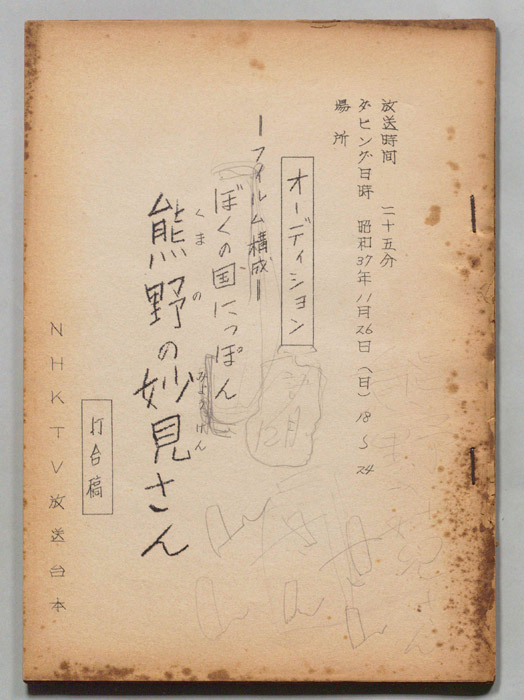 放送時間 二十五分
ダビング日時 昭和37年11月26日(日)18〜24
場所
オーディション
ーフイルム構成ー
ぼくの国にっぽん
熊野の妙見さん
くまの
みょうけん
打合稿
NHKTV放送台本